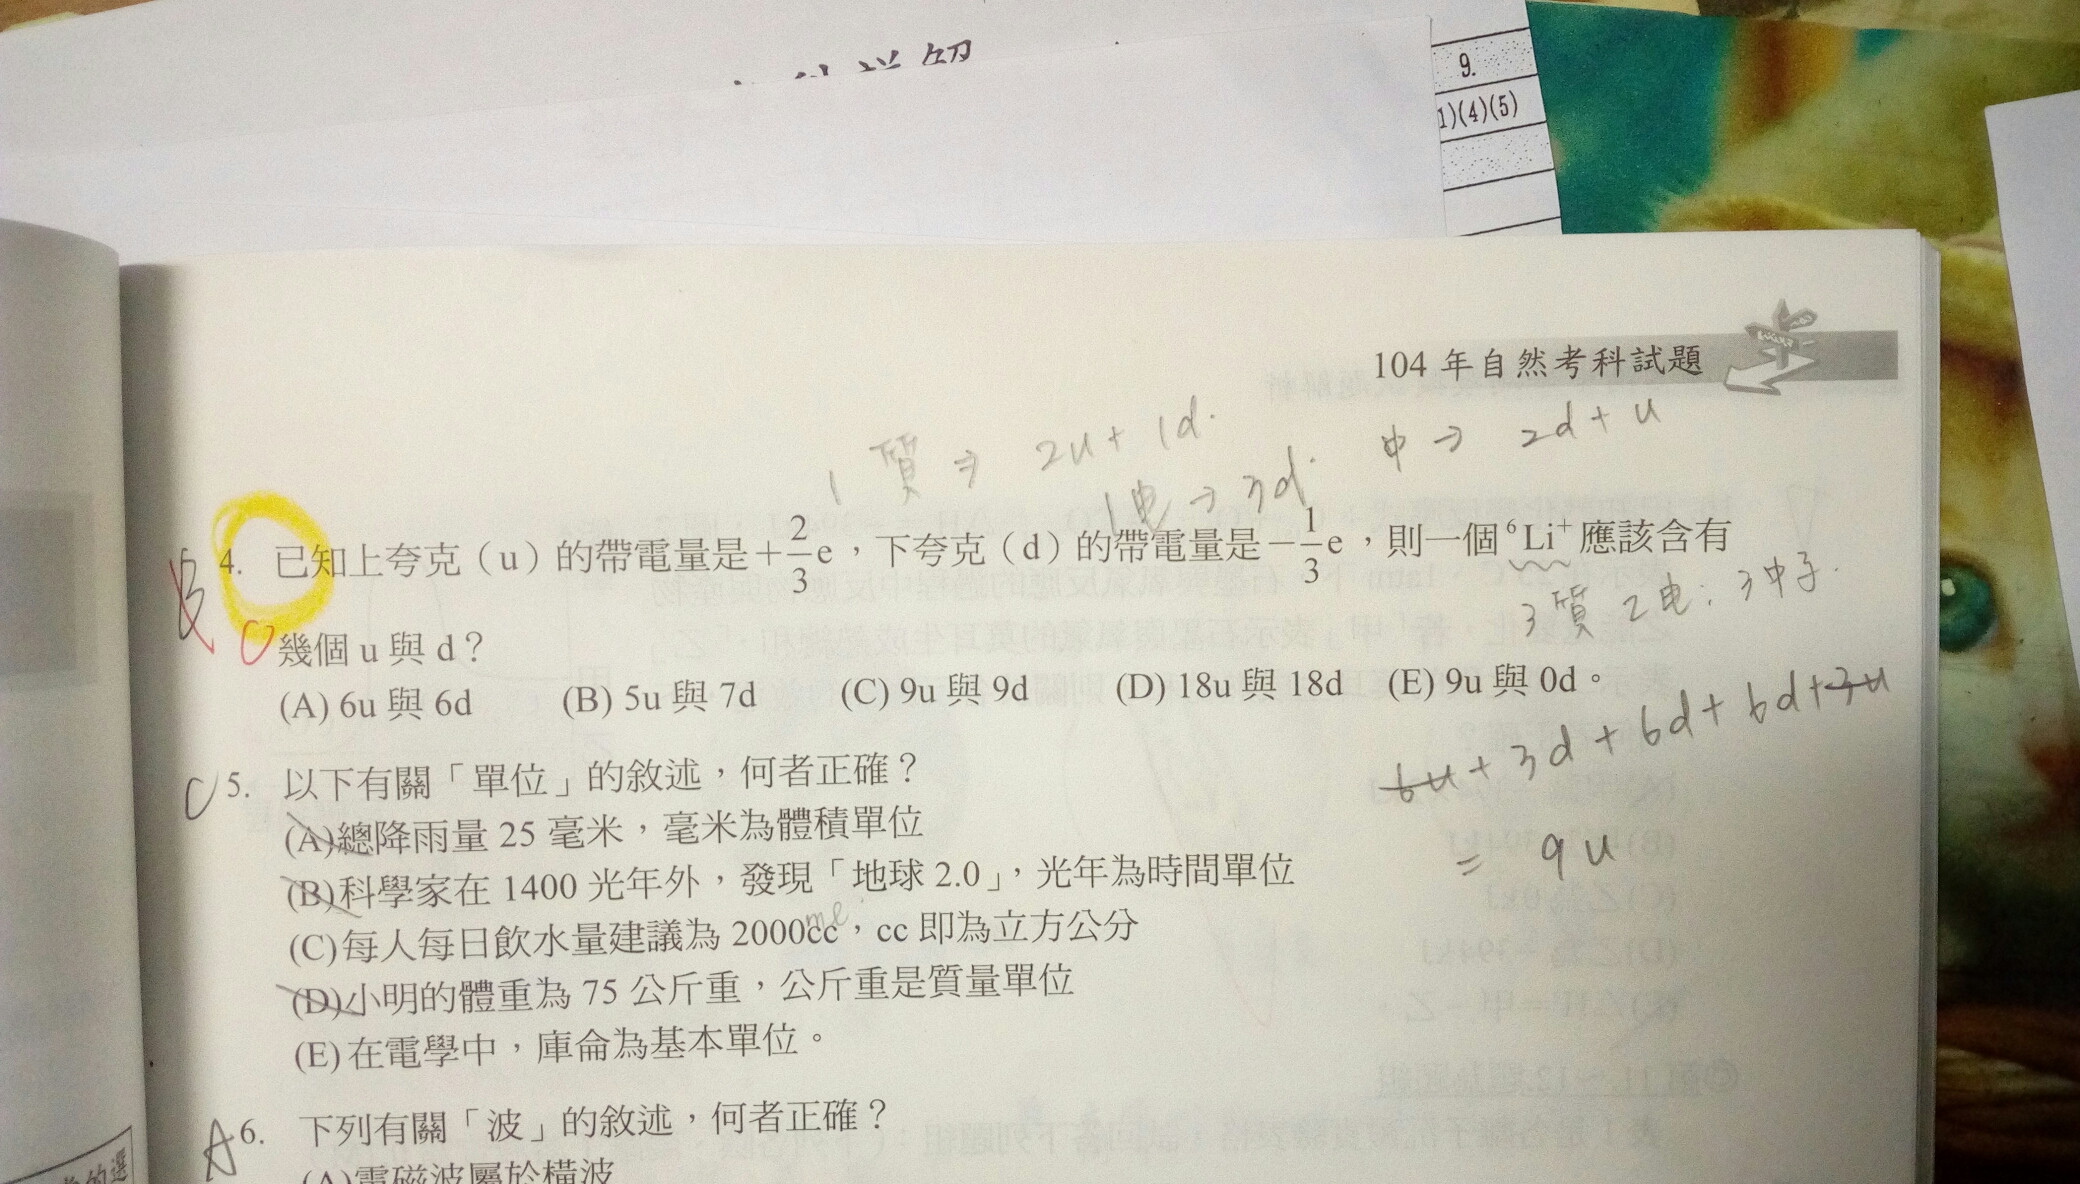 9.
1)(4)(5)
104 年自然考科試題
1 質 ⇒ 2u + 1d.
中 → 2d + u
1电 → 3d.
B
4. 已知上夸克（u）的帶電量是+2/3e，下夸克（d）的帶電量是−1/3e，則一個⁶Li⁺應該含有
3質 2电; 3中子.
C
幾個 u 與 d？
(A) 6u 與 6d (B) 5u 與 7d (C) 9u 與 9d (D) 18u 與 18d (E) 9u 與 0d。
6u + 3d + 6d + 6d + 3u
= 9u
C 5. 以下有關「單位」的敘述，何者正確？
(A)總降雨量 25 毫米，毫米為體積單位
(B)科學家在 1400 光年外，發現「地球 2.0」，光年為時間單位
(C)每人每日飲水量建議為 2000cc，cc 即為立方公分
(D)小明的體重為 75 公斤重，公斤重是質量單位
(E)在電學中，庫侖為基本單位。
A 6. 下列有關「波」的敘述，何者正確？
(A)電磁波屬於橫波
的選